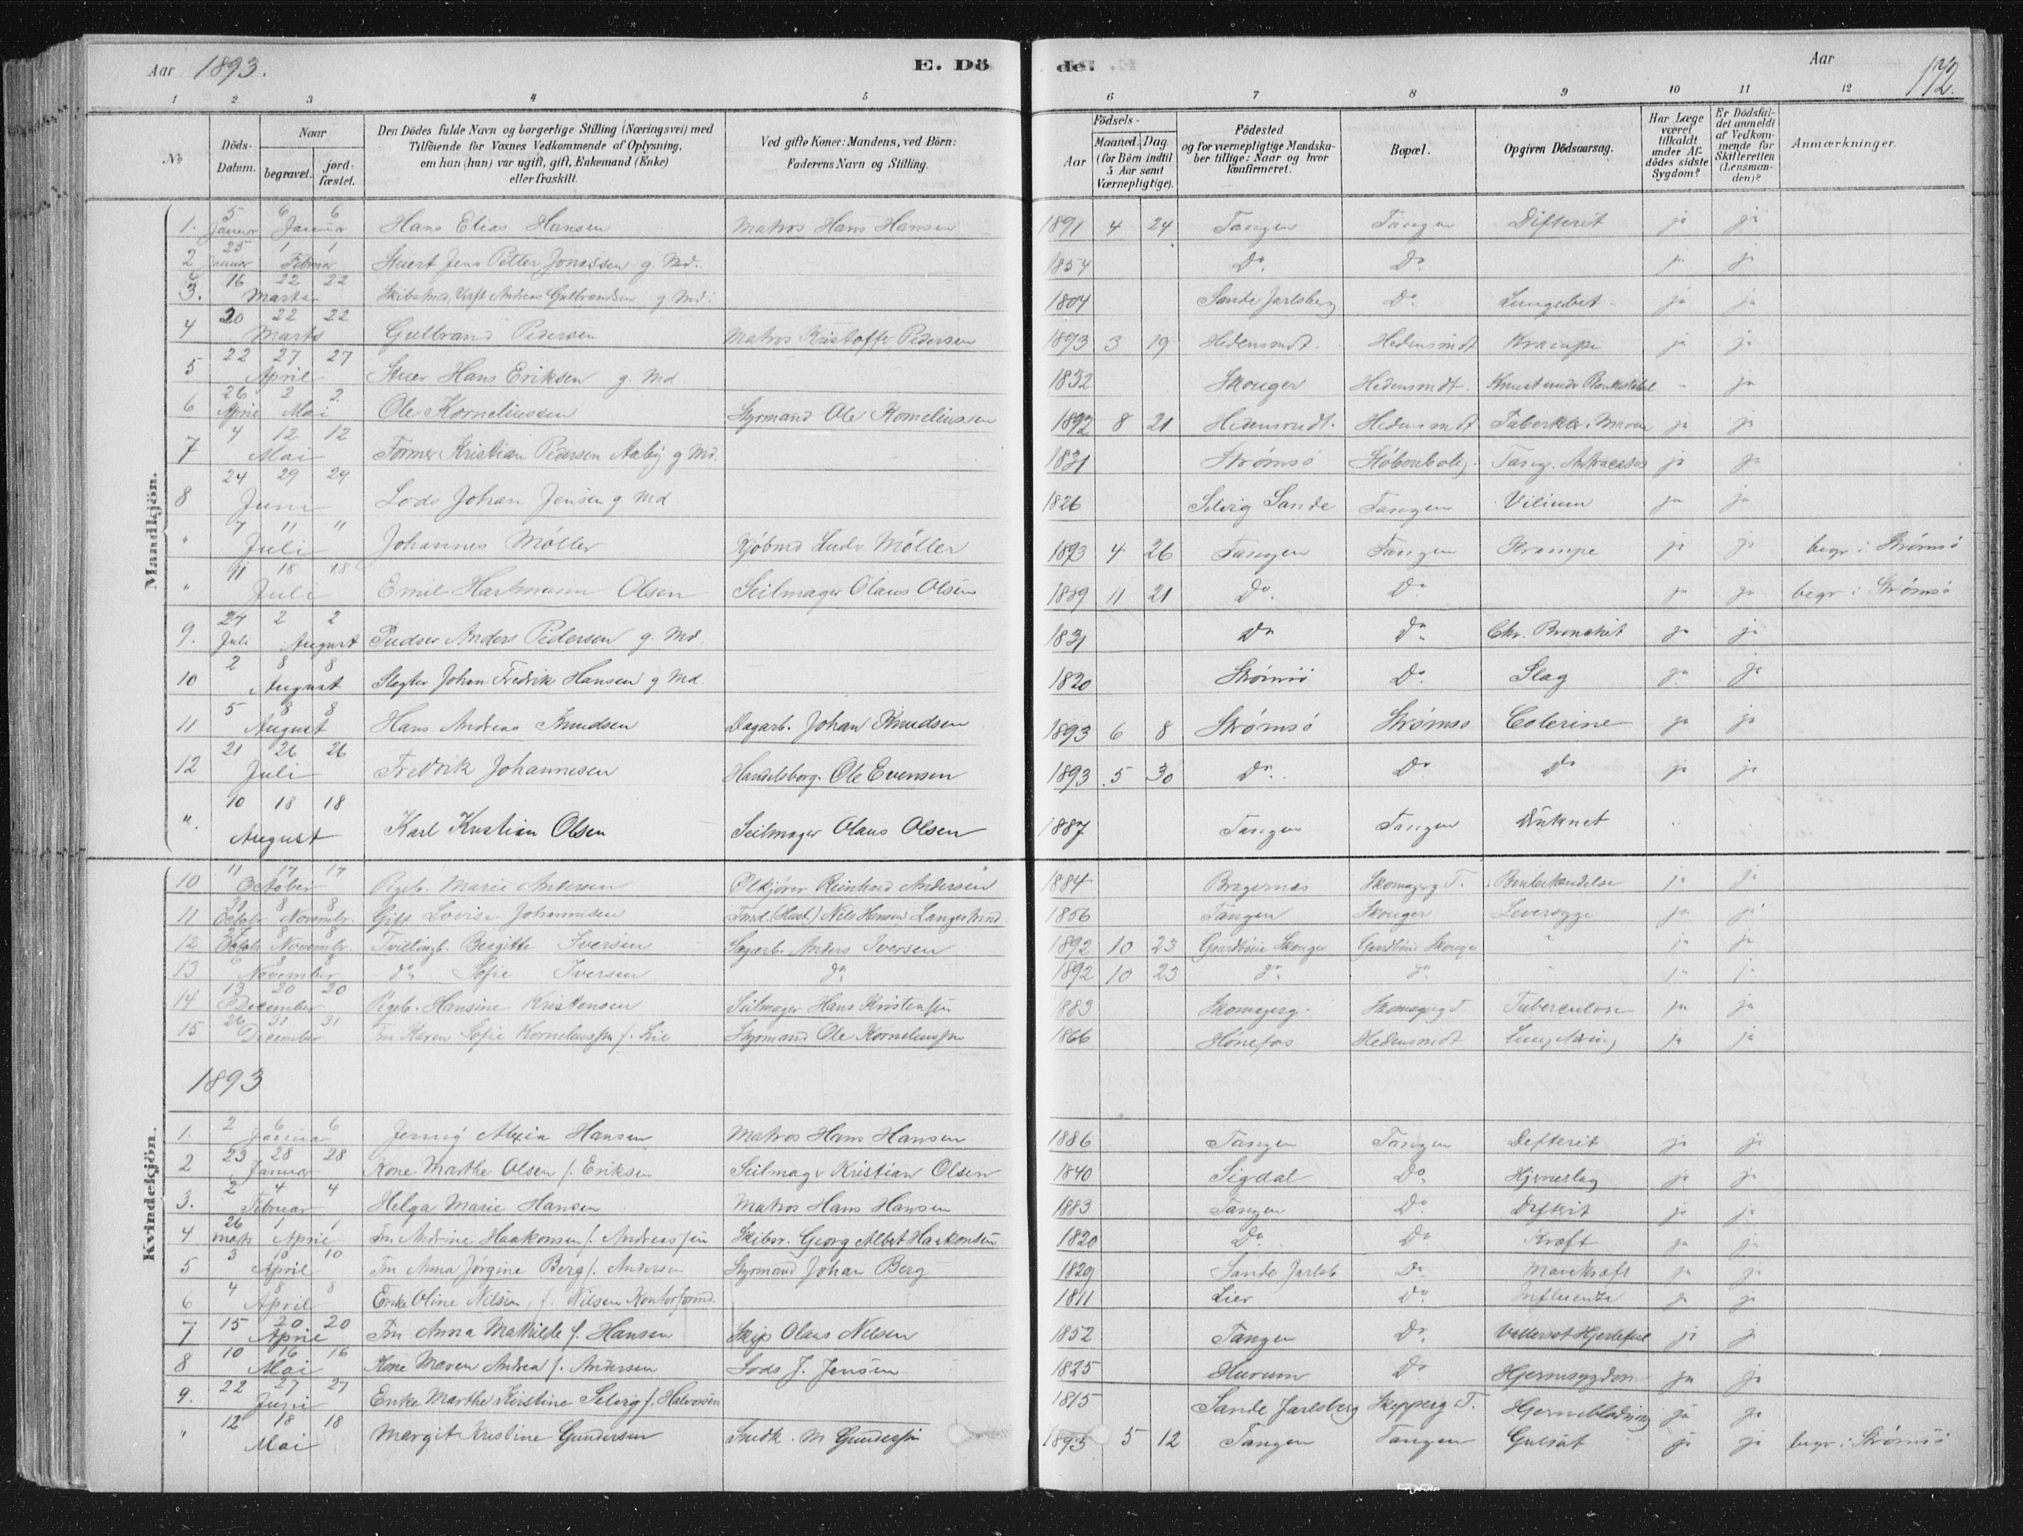 Aar 1893. E. Dö de. Aar 172.
1 2 3 4 5 6 7 8 9 10 11 12
No
Döds-Datum.
Naar begravet. jordfæstet.
Den Dödes fulde Navn og borgerlige Stilling (Næringsvei) med Tilföiende for Voxnes Vedkommende af Oplysning, om han (hun) var ugift, gift, Enkemand (Enke) eller fraskilt.
Ved gifte Koner: Mandens, ved Börn: Faderens Navn og Stilling.
Födsels-
Aar Maaned. Dag. (for Börn indtil 5 Aar samt Værnepligtige).
Födested og for værnepligtige Mandskaber tillige: Naar og hvor konfirmeret.
Bopæl.
Opgiven Dödsaarsag.
Har Læge været tilkaldt under Afdödes sidste Sygdom?
Er Dödsfaldet anmeldt af Vedkommende for Skifteretten (Lensmanden)?
Anmærkninger.
Mandkjön.
1. 5 Januar 6 6 Januar Hans Elias Hansen Matros Hans Hansen 1891 4 24 Tangen Tangen Difterit ja ja
2 25 Januar 1 1 Februar Stuert Jens Petter Jonassen g. Md. 1854 Do. Do. ja ja
3. 16 22 22 Marts Andreas Gulbrandsen g Md. 1804 Sande Jarlsberg Do Lungebet. ja ja
4 20 22 22 Marts Gulbrand Pedersen Matros Kristoffer Pedersen 1893 3 19 Hedensmdt. Hedensmdt Krampe ja ja
5 22 27 27 April Stuer Hans Eriksen g. Md 1832 Skouger Hedensmdt. Knust under Plankestabel - ja
6 26 April 2 2 Mai Ole Korneliussen Styrmand Ole Korneliussen 1892 8 21 Hedensmdt. Hedensmdt Tuberkler i Maven ja ja
7 4 12 12 Mai Former Kristian Pedersen Aaby g Md. 1831 Strømsø ja ja
8 24 29 29 Juni Lods Johan Jensen g Md 1826 Selvig Sande Tangen Vitium ja ja
" 7 11 11 Juli Johannes Møller Kjøbmd Ludv Møller 1893 4 26 Tangen Tangen Krampe ja ja begr i Strømsø
" 11 18 18 Juli Emil Hartmann Olsen Seilmager Olaus Olsen 1889 11 21 Do. Do ja ja begr i Strømsø
9. 27 Juli 2 2 August Pudser Anders Pedersen g. Md. 1831 Do Do Chr. Bronchit ja ja
10 2 8 8 August Slagter Johan Fredrik Hansen g Md. 1820 Strømsø Do. Slag ja ja
11 5 8 8 August Hans Andreas Knudsen Dagarb. Johan Knudsen 1893 6 8 Strømsø Strømsø Colerine ja ja
12 21 26 26 Juli Fredrik Johannesen Handelsborg. Ole Evensen 1893 5 30 Do. Do Do ja ja
" 10 18 18 August Karl Kristian Olsen Seilmager Olaus Olsen 1887 Tangen Tangen Druknet
Kvindekjön.
10 11 17 17 October Pigeb. Marie Andersen Ølkjører Reinhard Andersen 1884 Bragernæs Skomagerg T. ja ja
11 October 8 8 November. Gift Lovise Johannesen Nils Hansen Langestrand 1856 Tangen Skouger Leversyge ja ja
12 27 October 8 8 November. Tvillingb. Bergitte Iversen Sagarb. Anders Iversen 1892 10 23 Skouger Skouger " ja ja
13 6 8 8 November do Sofie Iversen do 1892 10 23 do do " ja ja
14 13 20 20 December Pigeb. Hansine Kristensen Seilmager Hans Kristensen 1883 Skomagerg. Skomagerg T Tuberculose ja ja
15 26 31 31 December Fru Karen Sofie Korneliussen f. Lie Styrmand Ole Korneliussen 1866 Hönefos Hedensmdt ja ja
1893
1. 2 6 6 Januar Jenny Alexia Hansen Matros Hans Hansen 1886 Tangen Tangen Defterit ja ja
2 23 28 28 Januar Kone Marthe Olsen f. Eriksen Seilmager Kristian Olsen 1840 Sigdal Do Hjerneslag ja ja
3. 2 4 4 Februar Helga Marie Hansen Matros Hans Hansen 1883 Tangen Do. Defterit ja ja
4 26 marts 1 1 April Fru Andrine Haakonsen f. Andreassen Skibsr. Georg Albert Haakonsen 1820 Do. Do Kræft ja ja
5 3 10 10 April Fru Anna Jørgine Berg f. Andersen Styrmand Johan Berg 1829 Sande Jarlsb Do Mavekræft ja ja
6 4 8 8 April Enke Oline Nilsen, f. Nilsen 1811 Lier Do Influenza ja ja
7 15 20 20 April Fru Anna Mathilde f. Hansen Skip Olaus Nilsen 1852 Tangen Do. Hjertefeil ja ja
8 10 16 16 Mai Kone Maren Andrea f. Andersen Lods J. Jensen 1825 Hurum Do Hjernesygdom ja ja
9. 22 27 27 Juni Enke Marthe Kirstine Selvig f. Halvorsen 1815 Sande Jarlsberg Skipperg T. Hjerneblødning ja ja
" 12 18 18 Mai Margit Kristine Gundersen Snedk. M Gundersen 1893 5 12 Tangen Tangen Gulsot ja ja begr i Strømsö